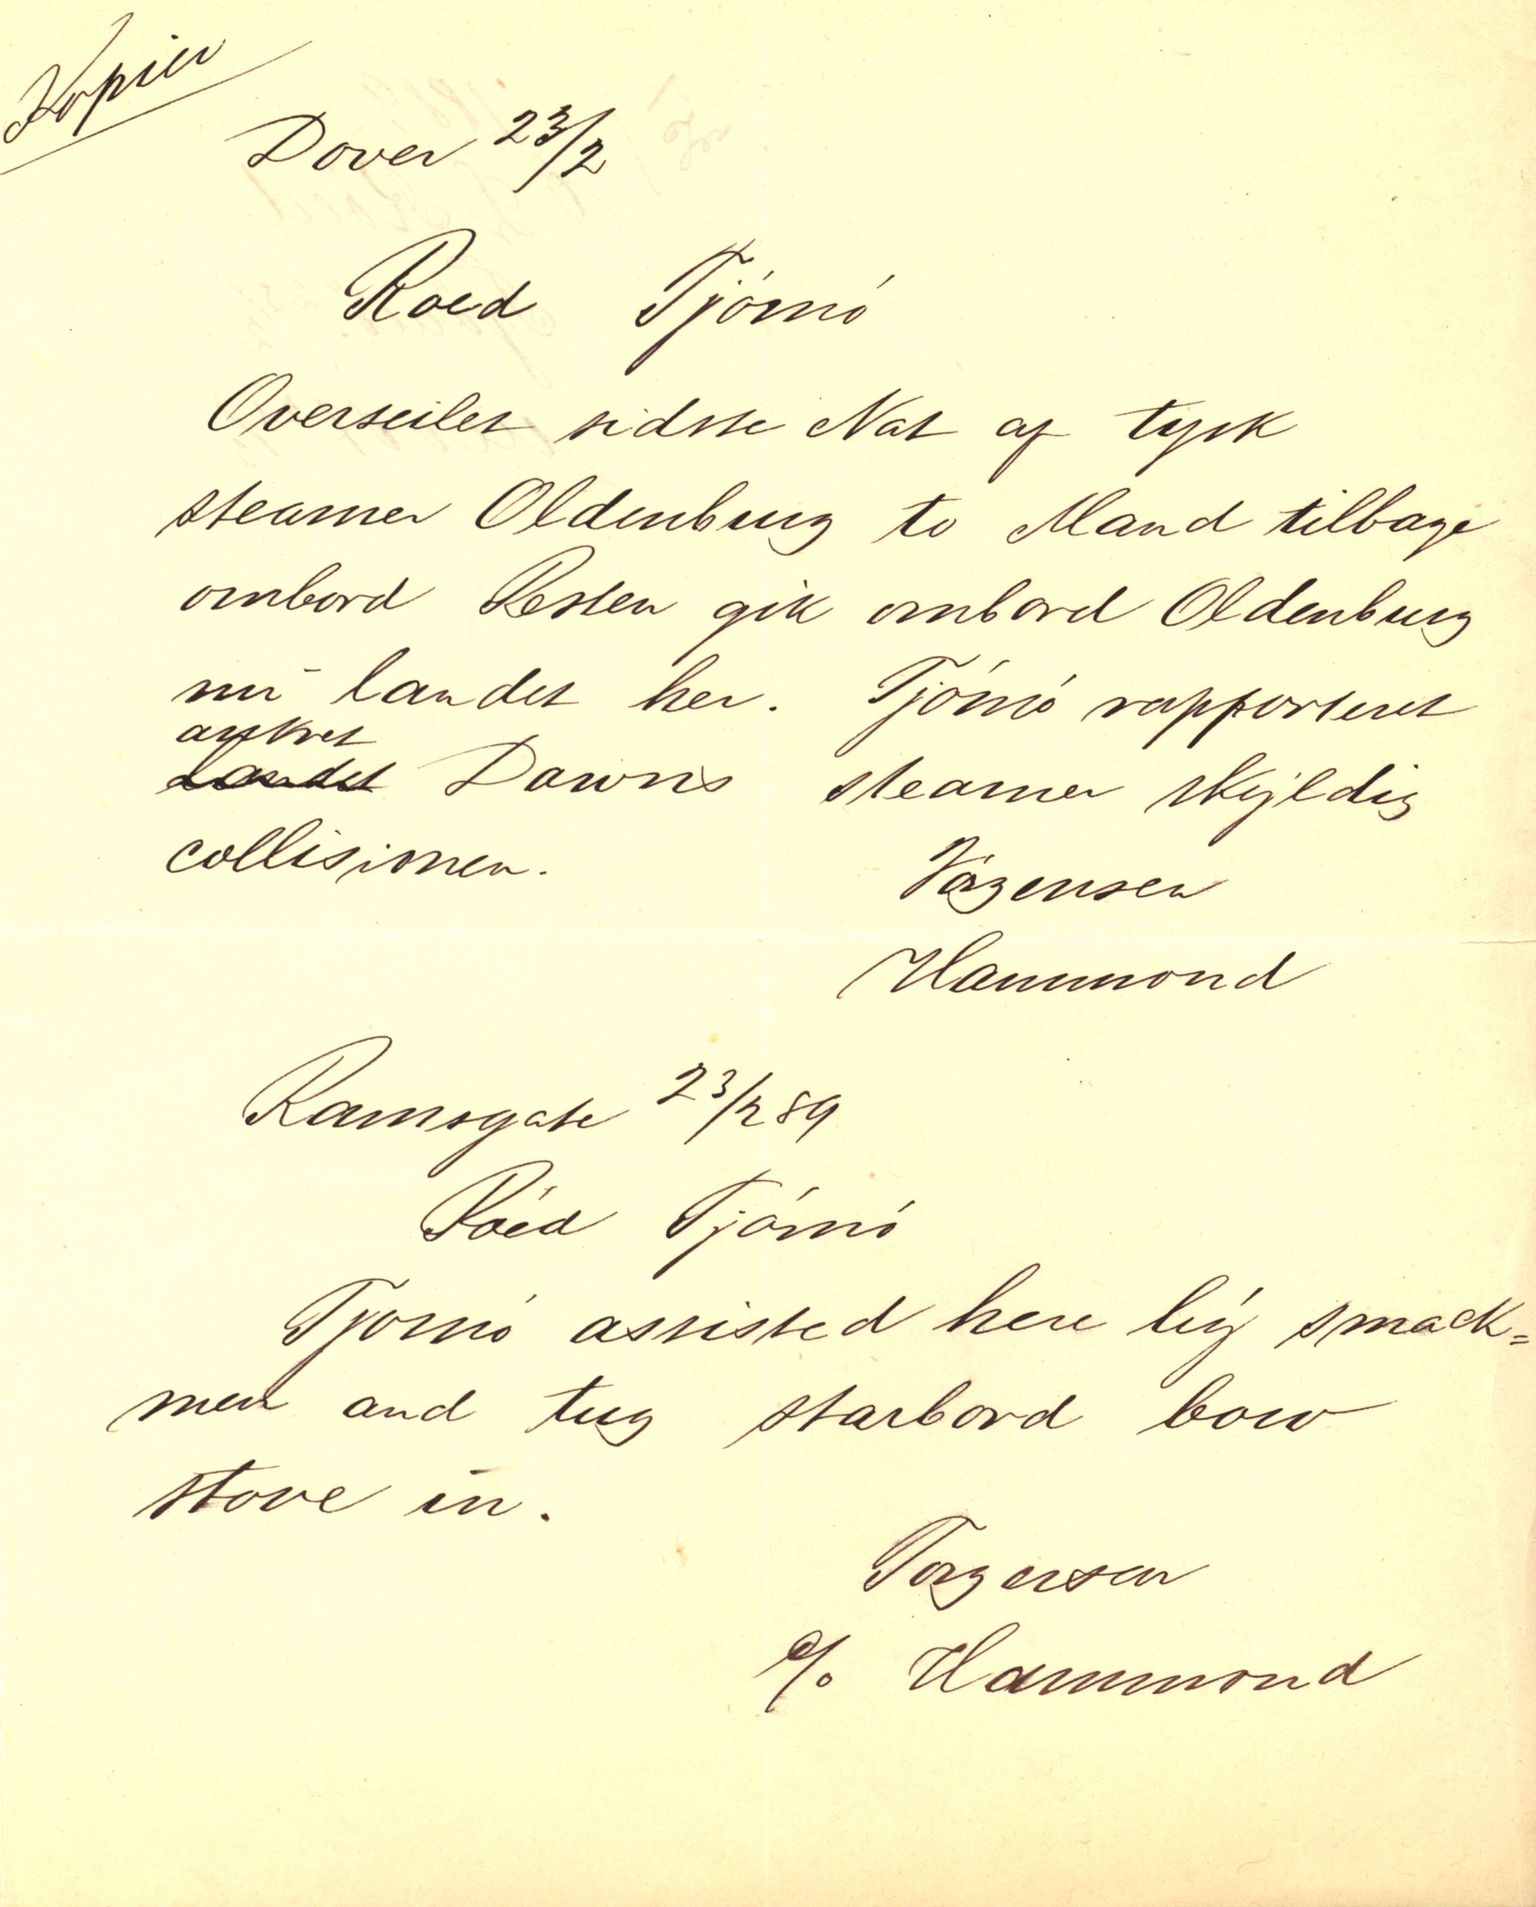 Kopier
Dover 23/2
Roed Tjömö
Overseilet sidste Nat af tysk
steamer Oldenburg to Mand tilbage
ombord Resten gik ombord Oldenburg
nu landet her. Tjömö rapporteret
ankret
landet Downs steamer skyldig
collisionen.
Jörgensen
Hammond
Ramsgate 23/2 89
Röed Tjömö
Tjömö assisted here by smack=
men and tug starbord bow
stove in.
Jörgensen
c/o Hammond